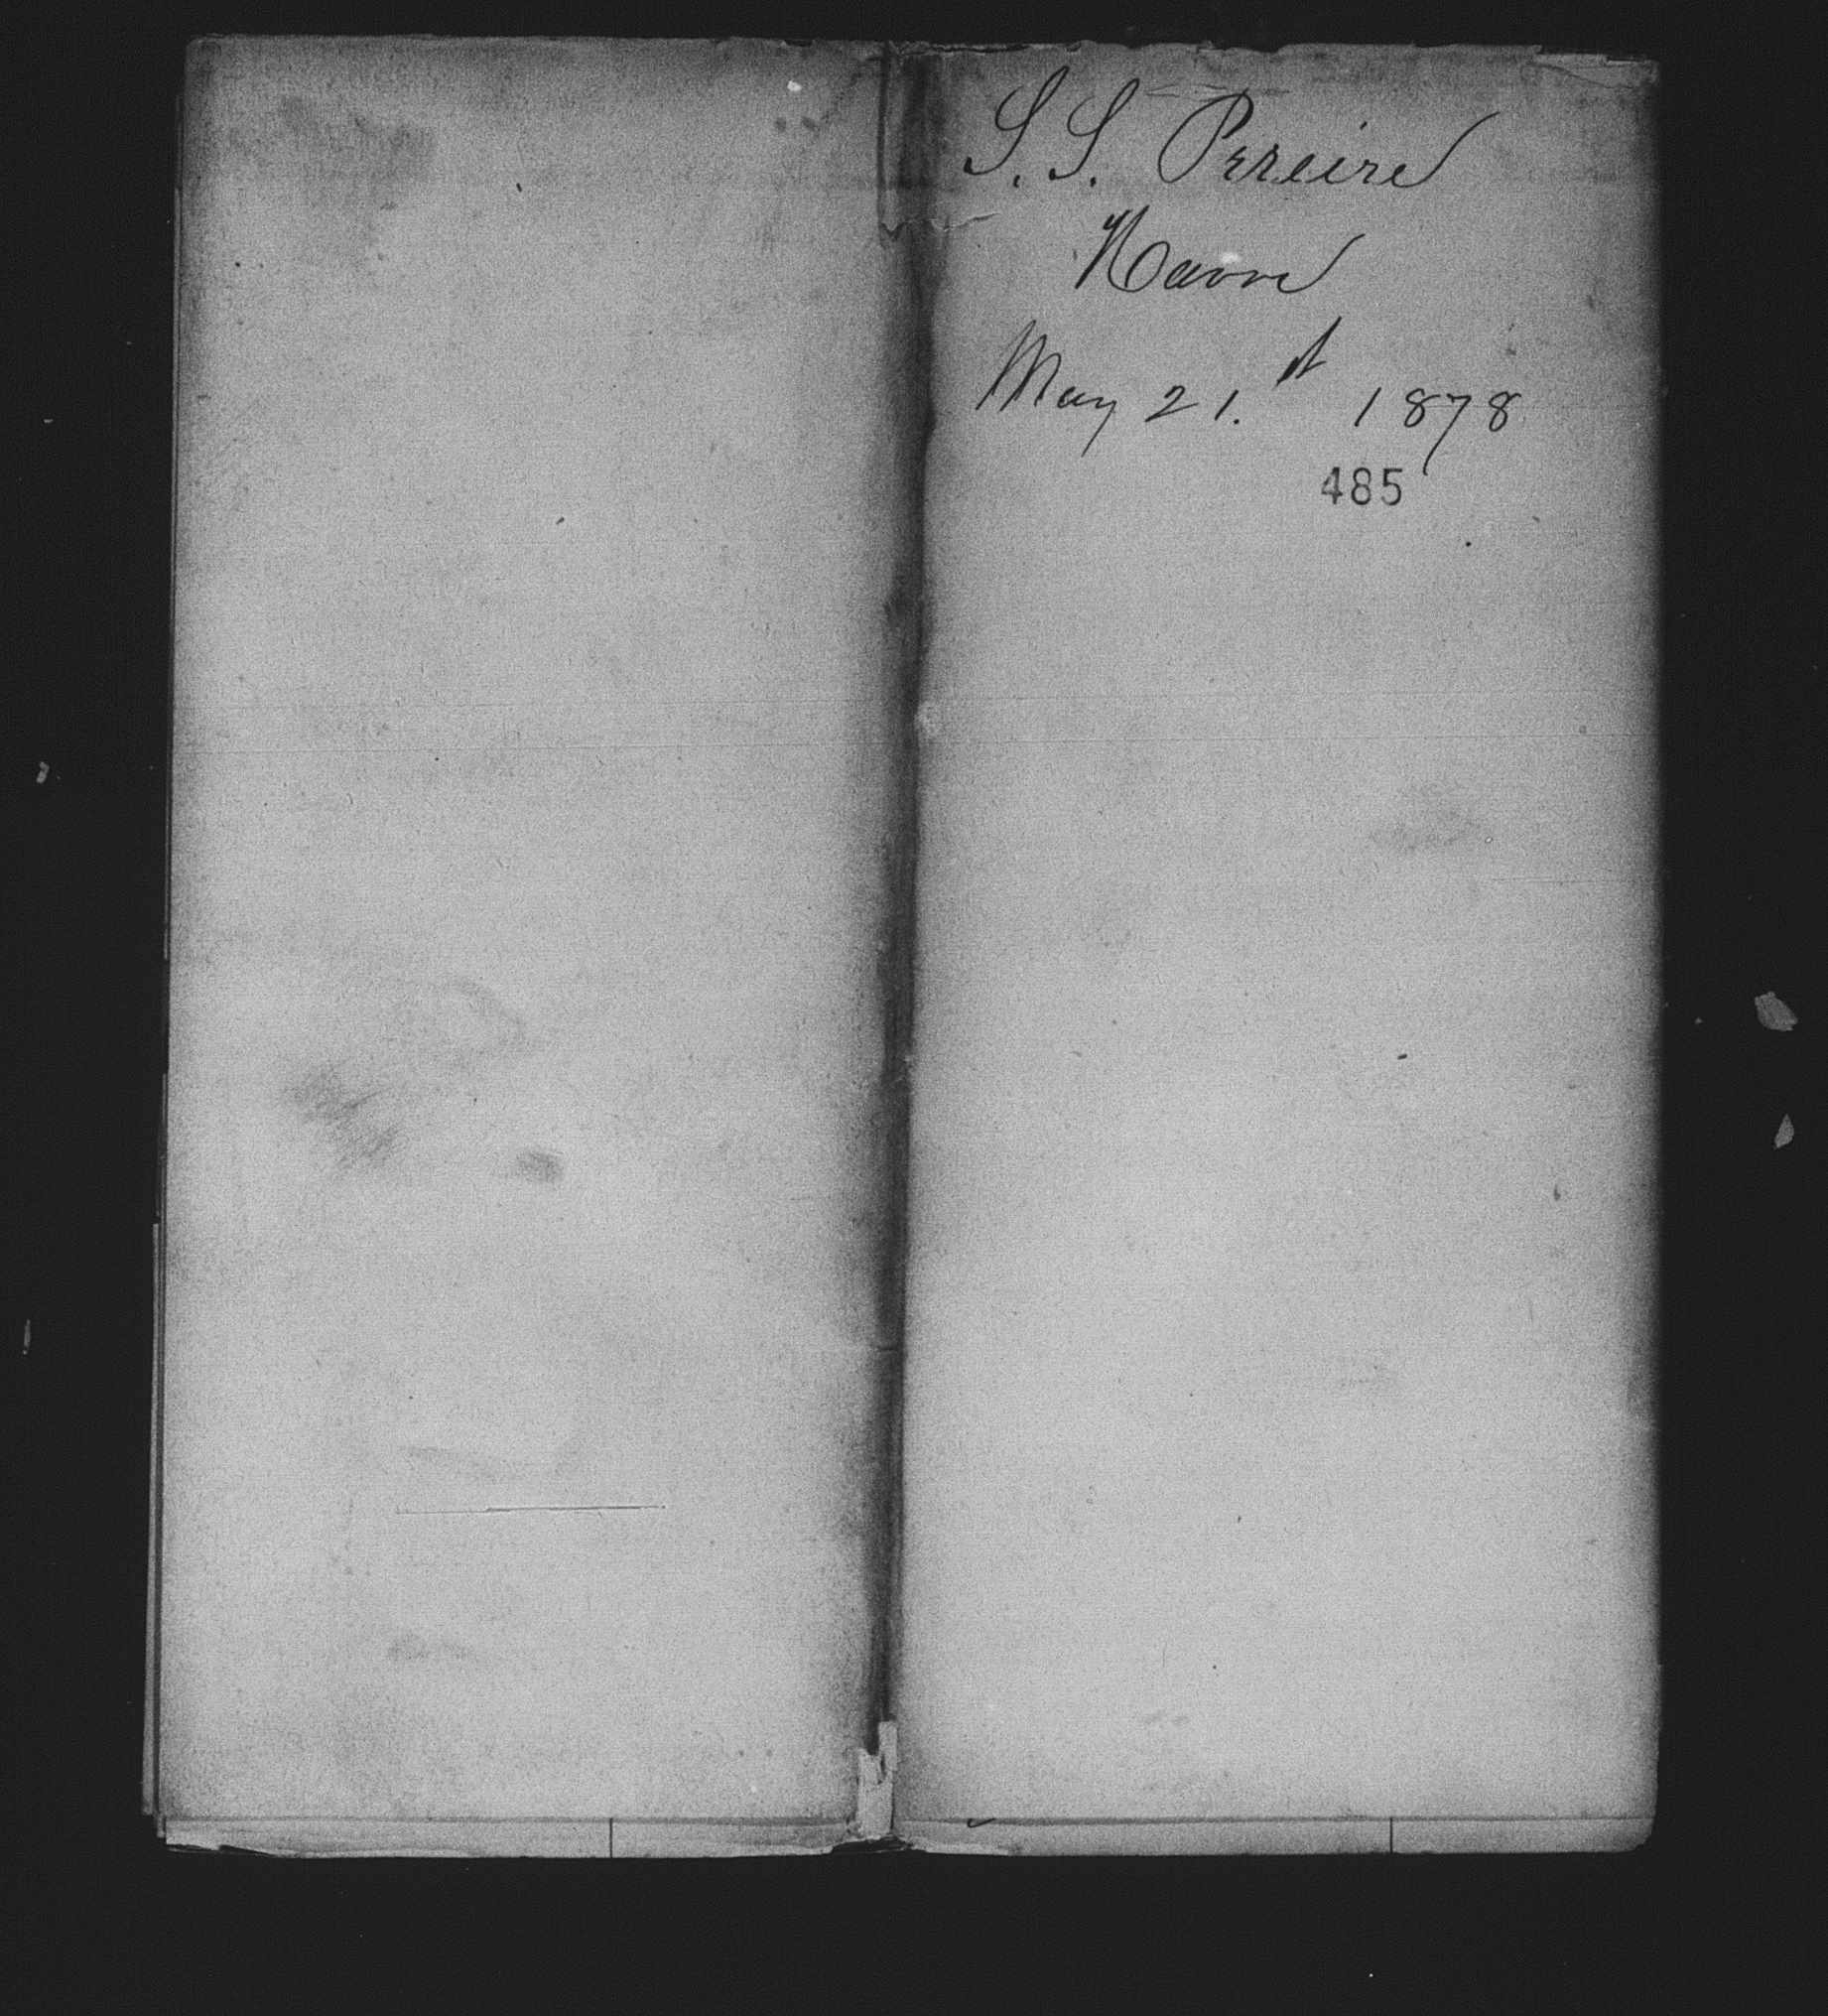 S. S. Pereire
Havre
May 21.st 1878
485